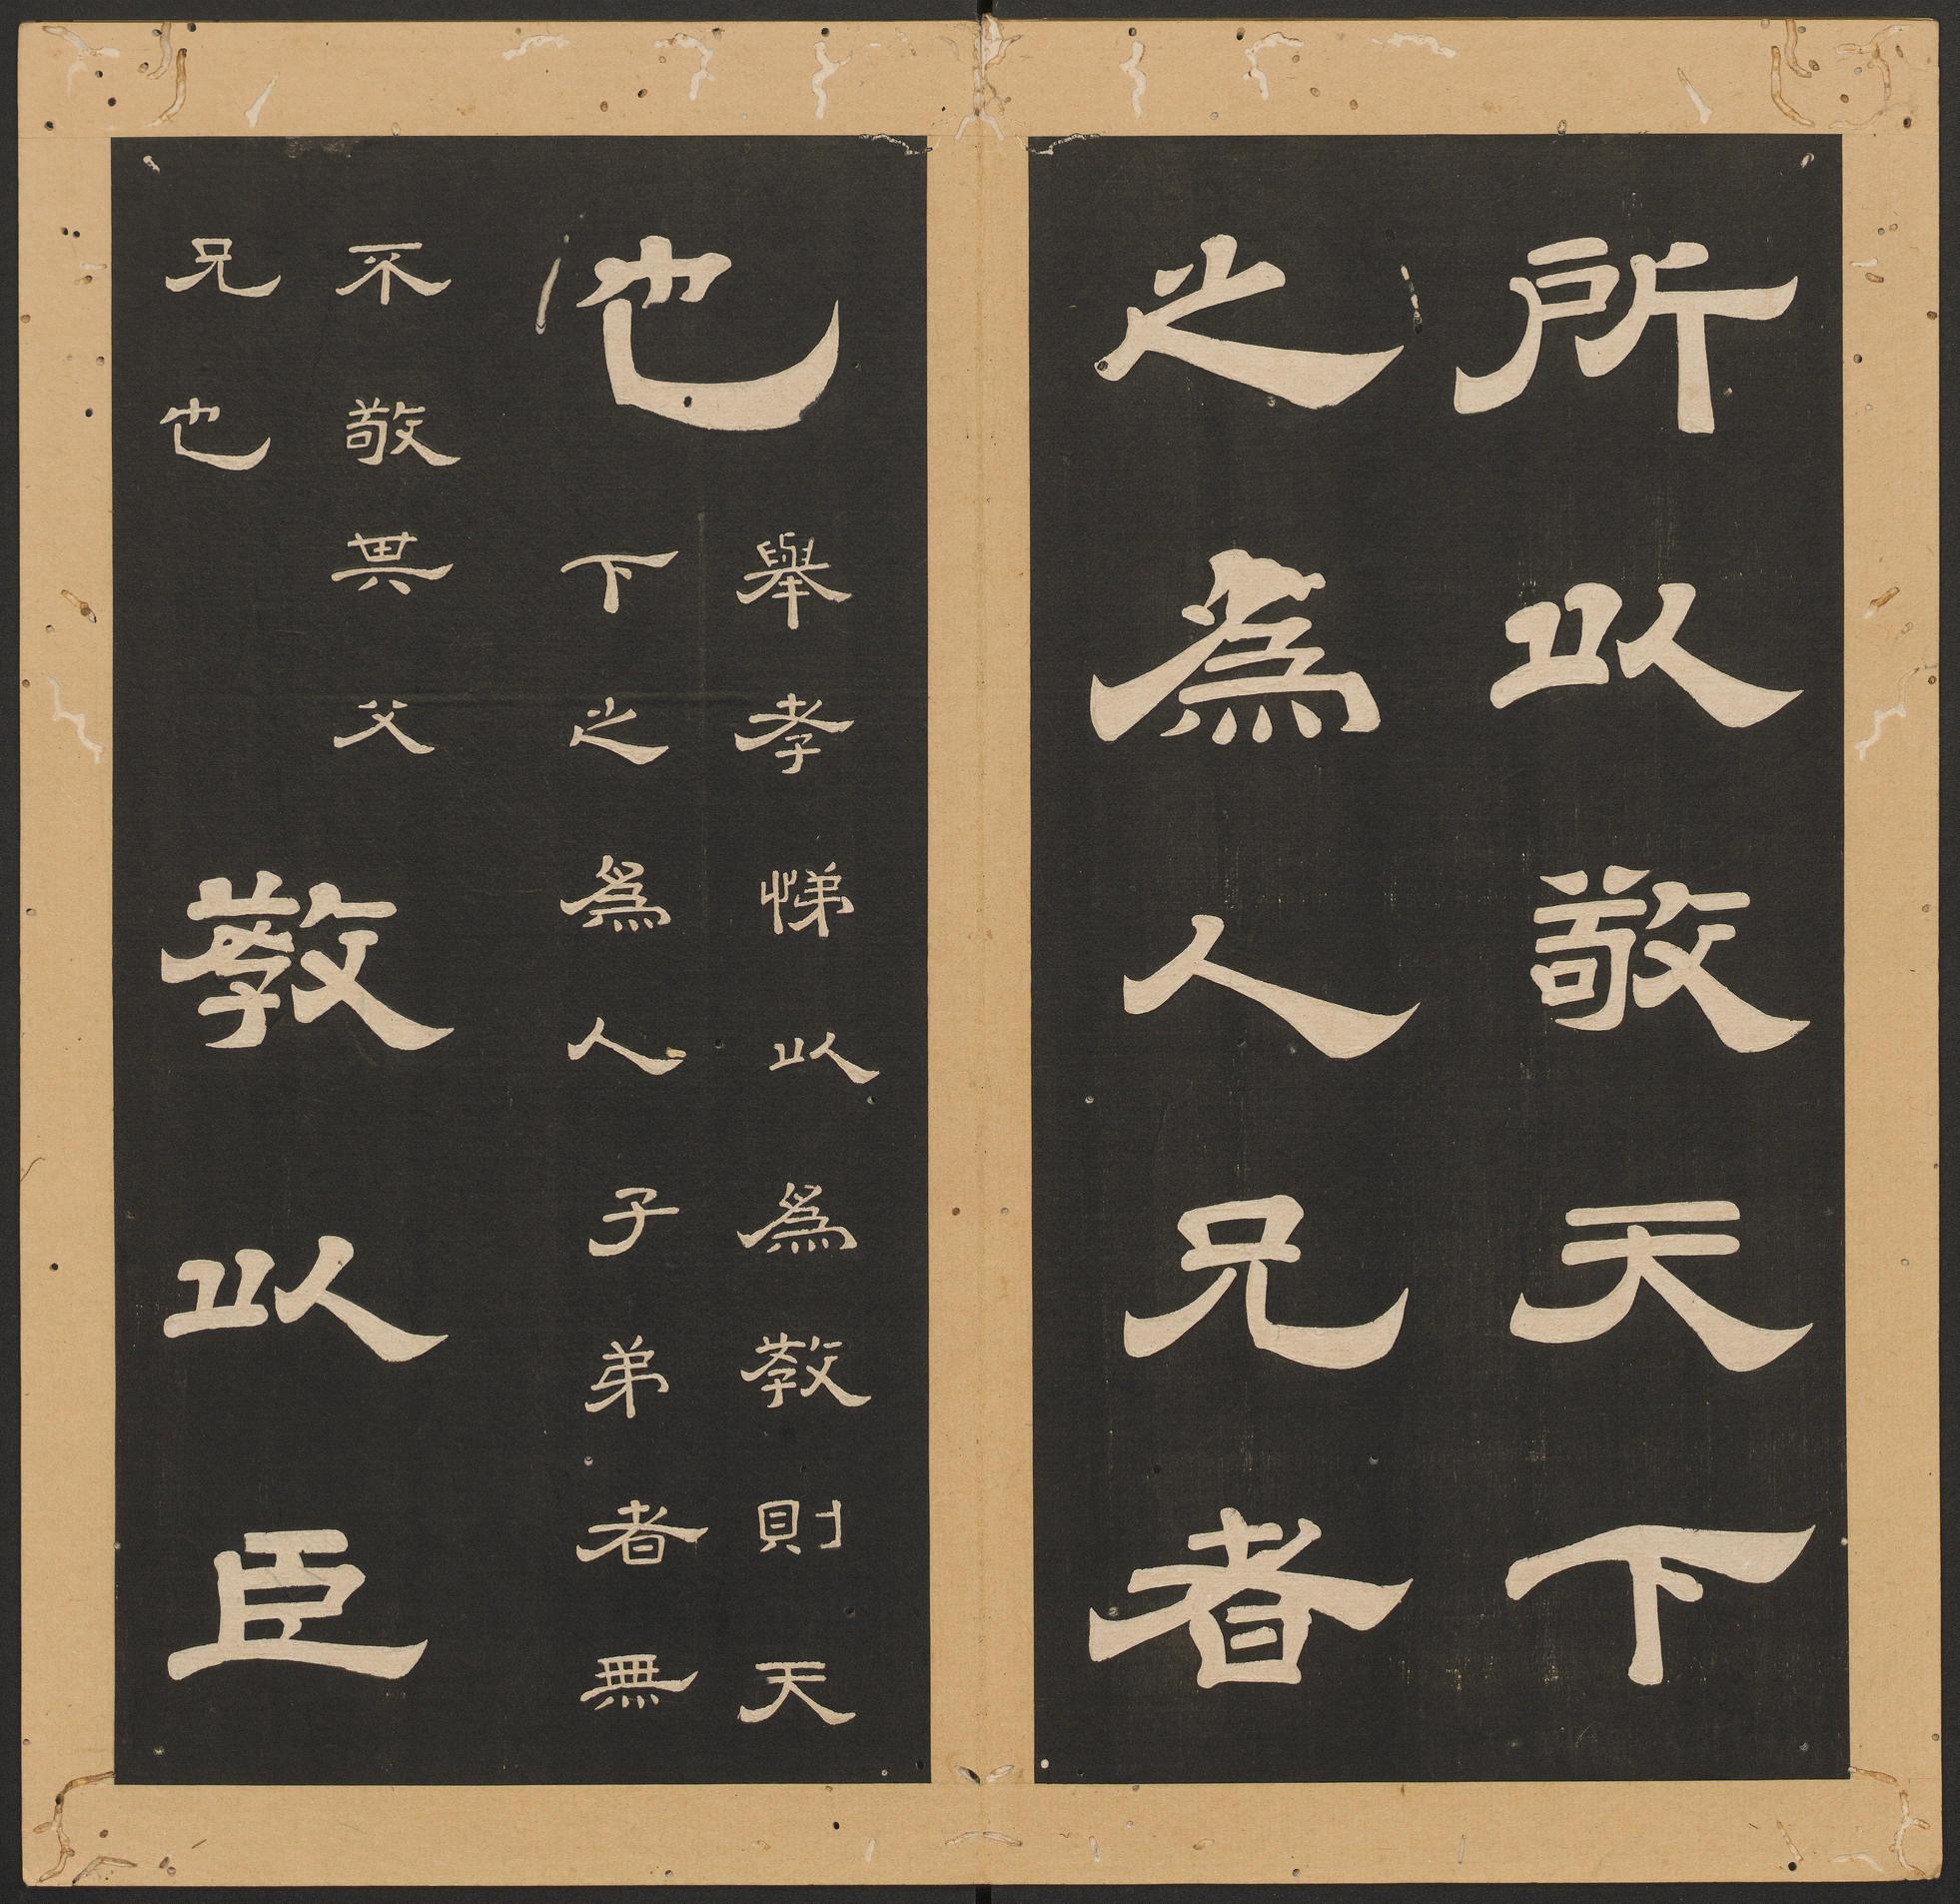 所以敬天下
之為人兄者
也
舉孝悌以為教則天
下之為人子弟者無
不敬其父
兄也
教以臣